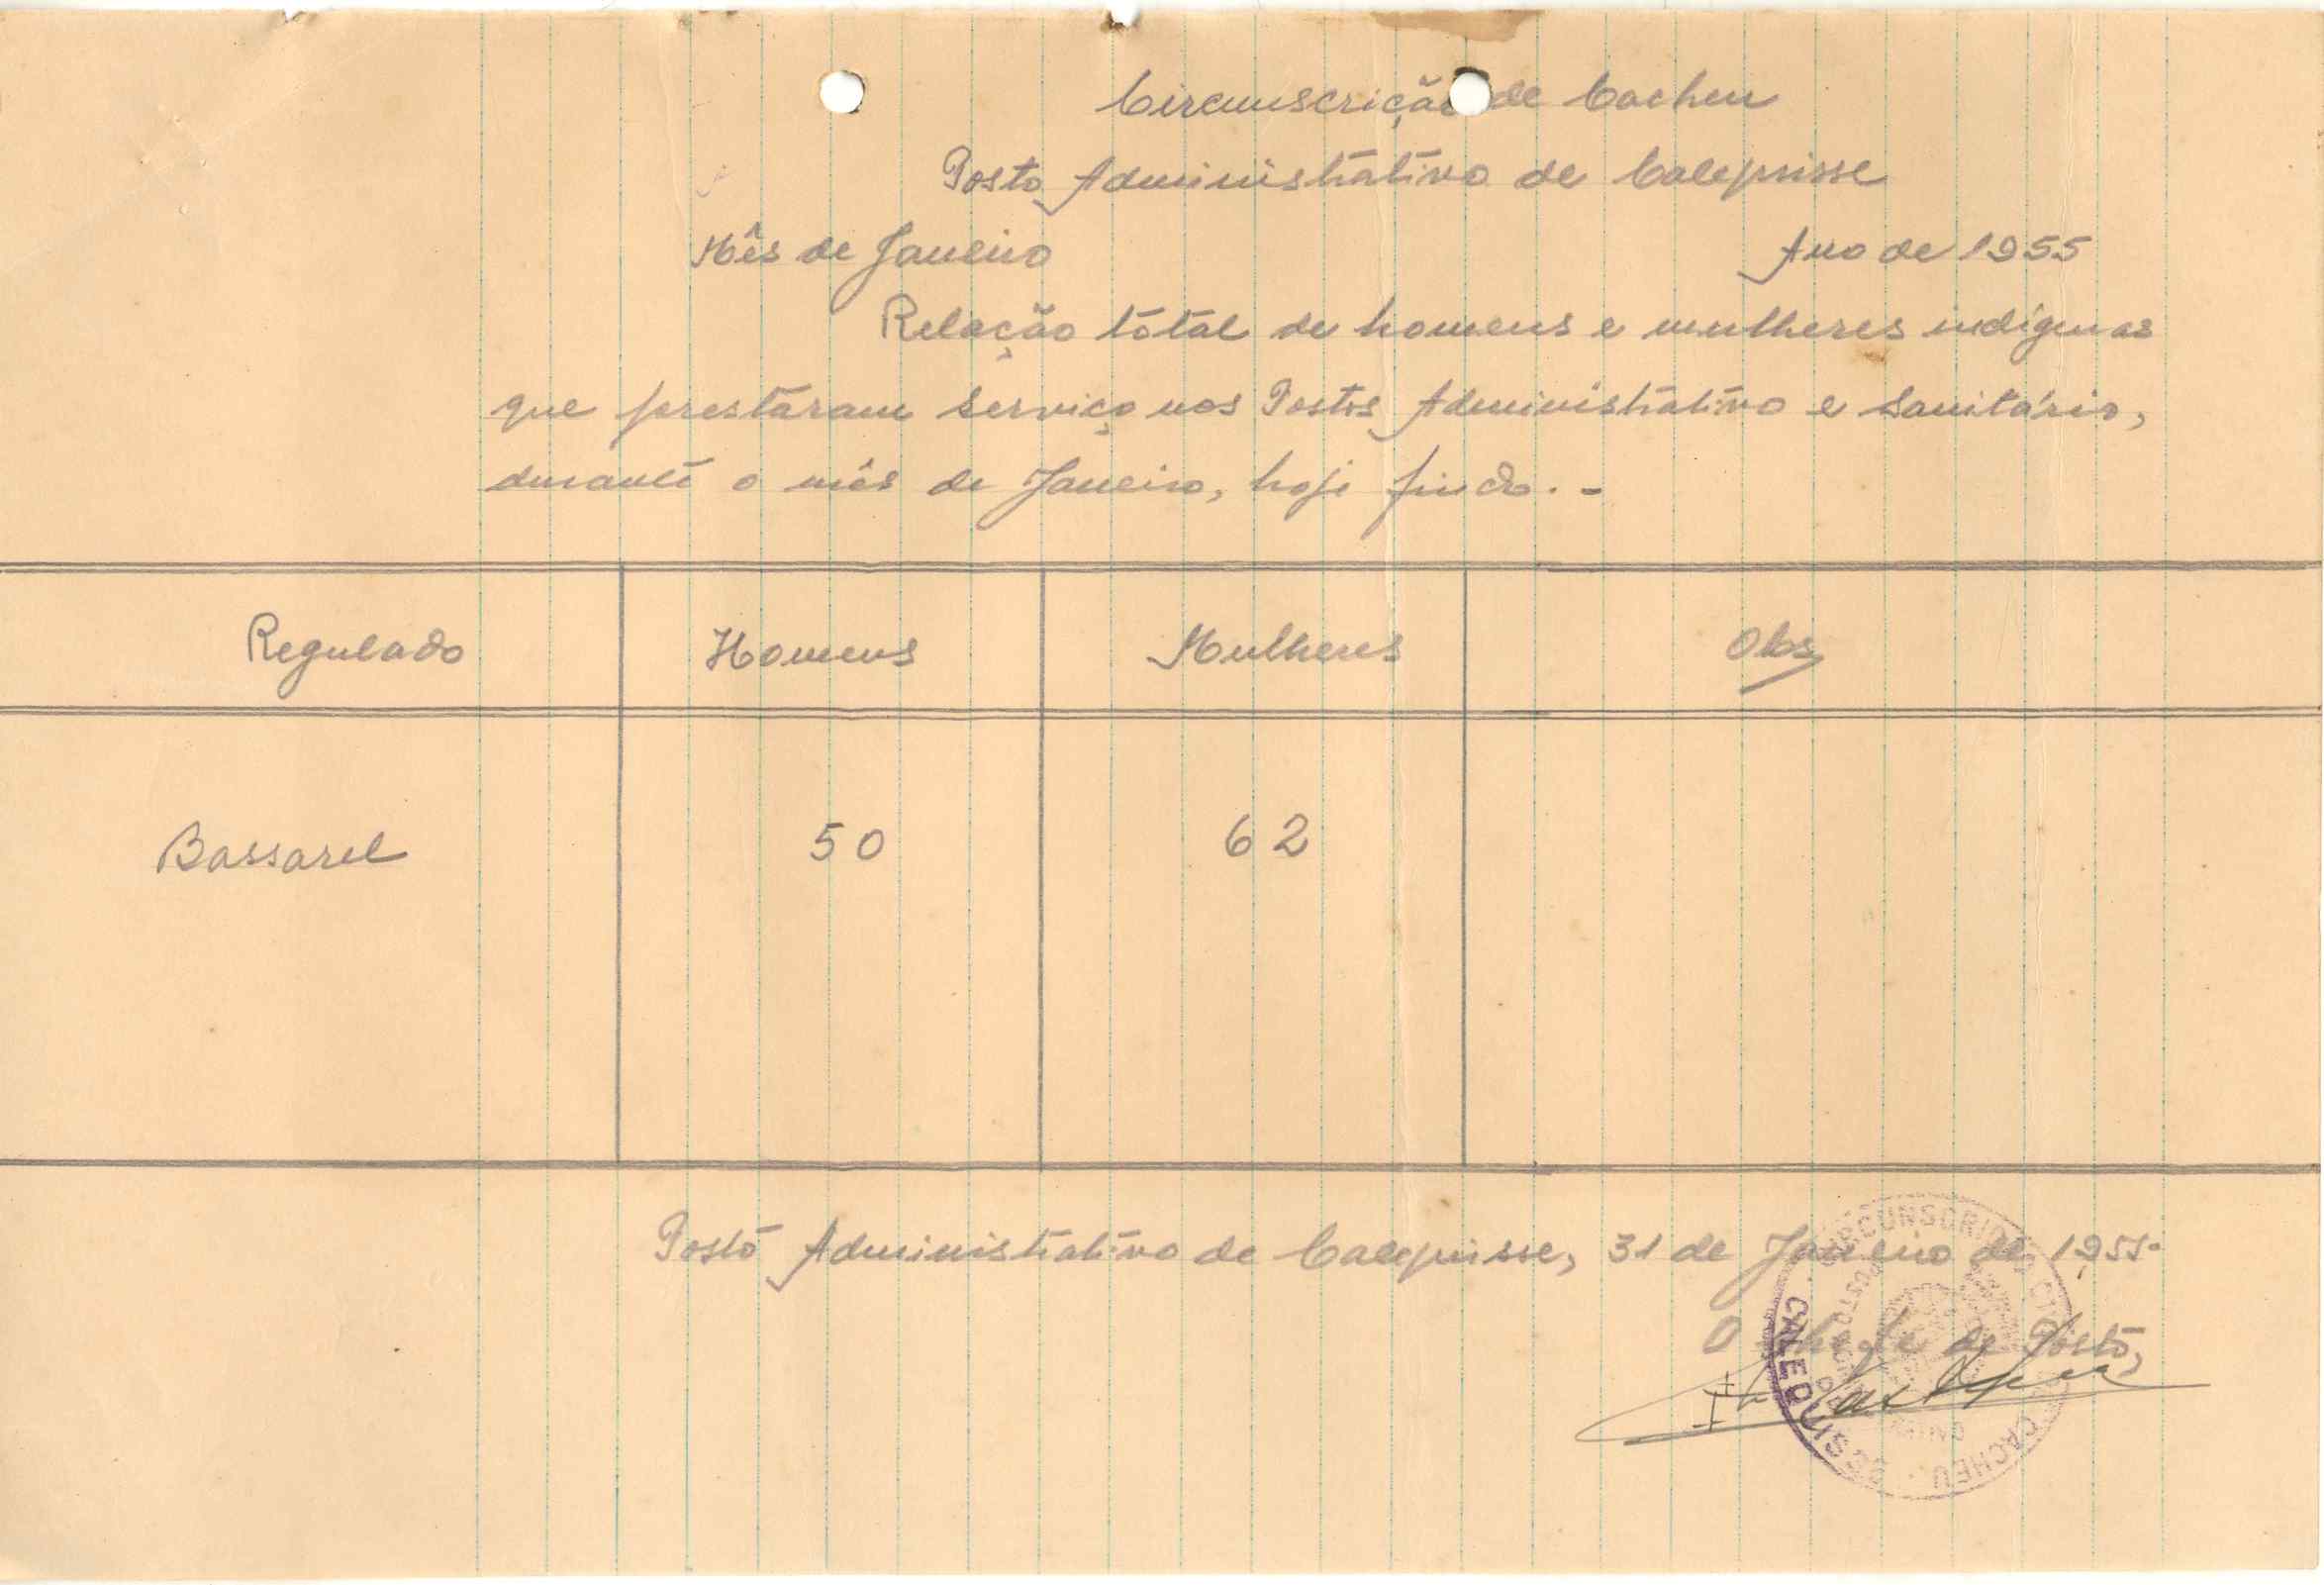 Circunscrição de Cacheu
Posto Administrativo de Calequisse
Mês de Janeiro Ano de 1955
Relação total de homens e mulheres indígenas
que prestaram serviço nos Postos Administrativo e Sanitário,
durante o mês de Janeiro, hoje findo. -
Regulado Homens Mulheres Obs
Bassarel 50 62
Posto Administrativo de Calequisse, 31 de Janeiro de 1955.
O Chefe de Posto,
CIRCUNSCRIÇÃO CIVIL CACHEU
CALEQUISSE